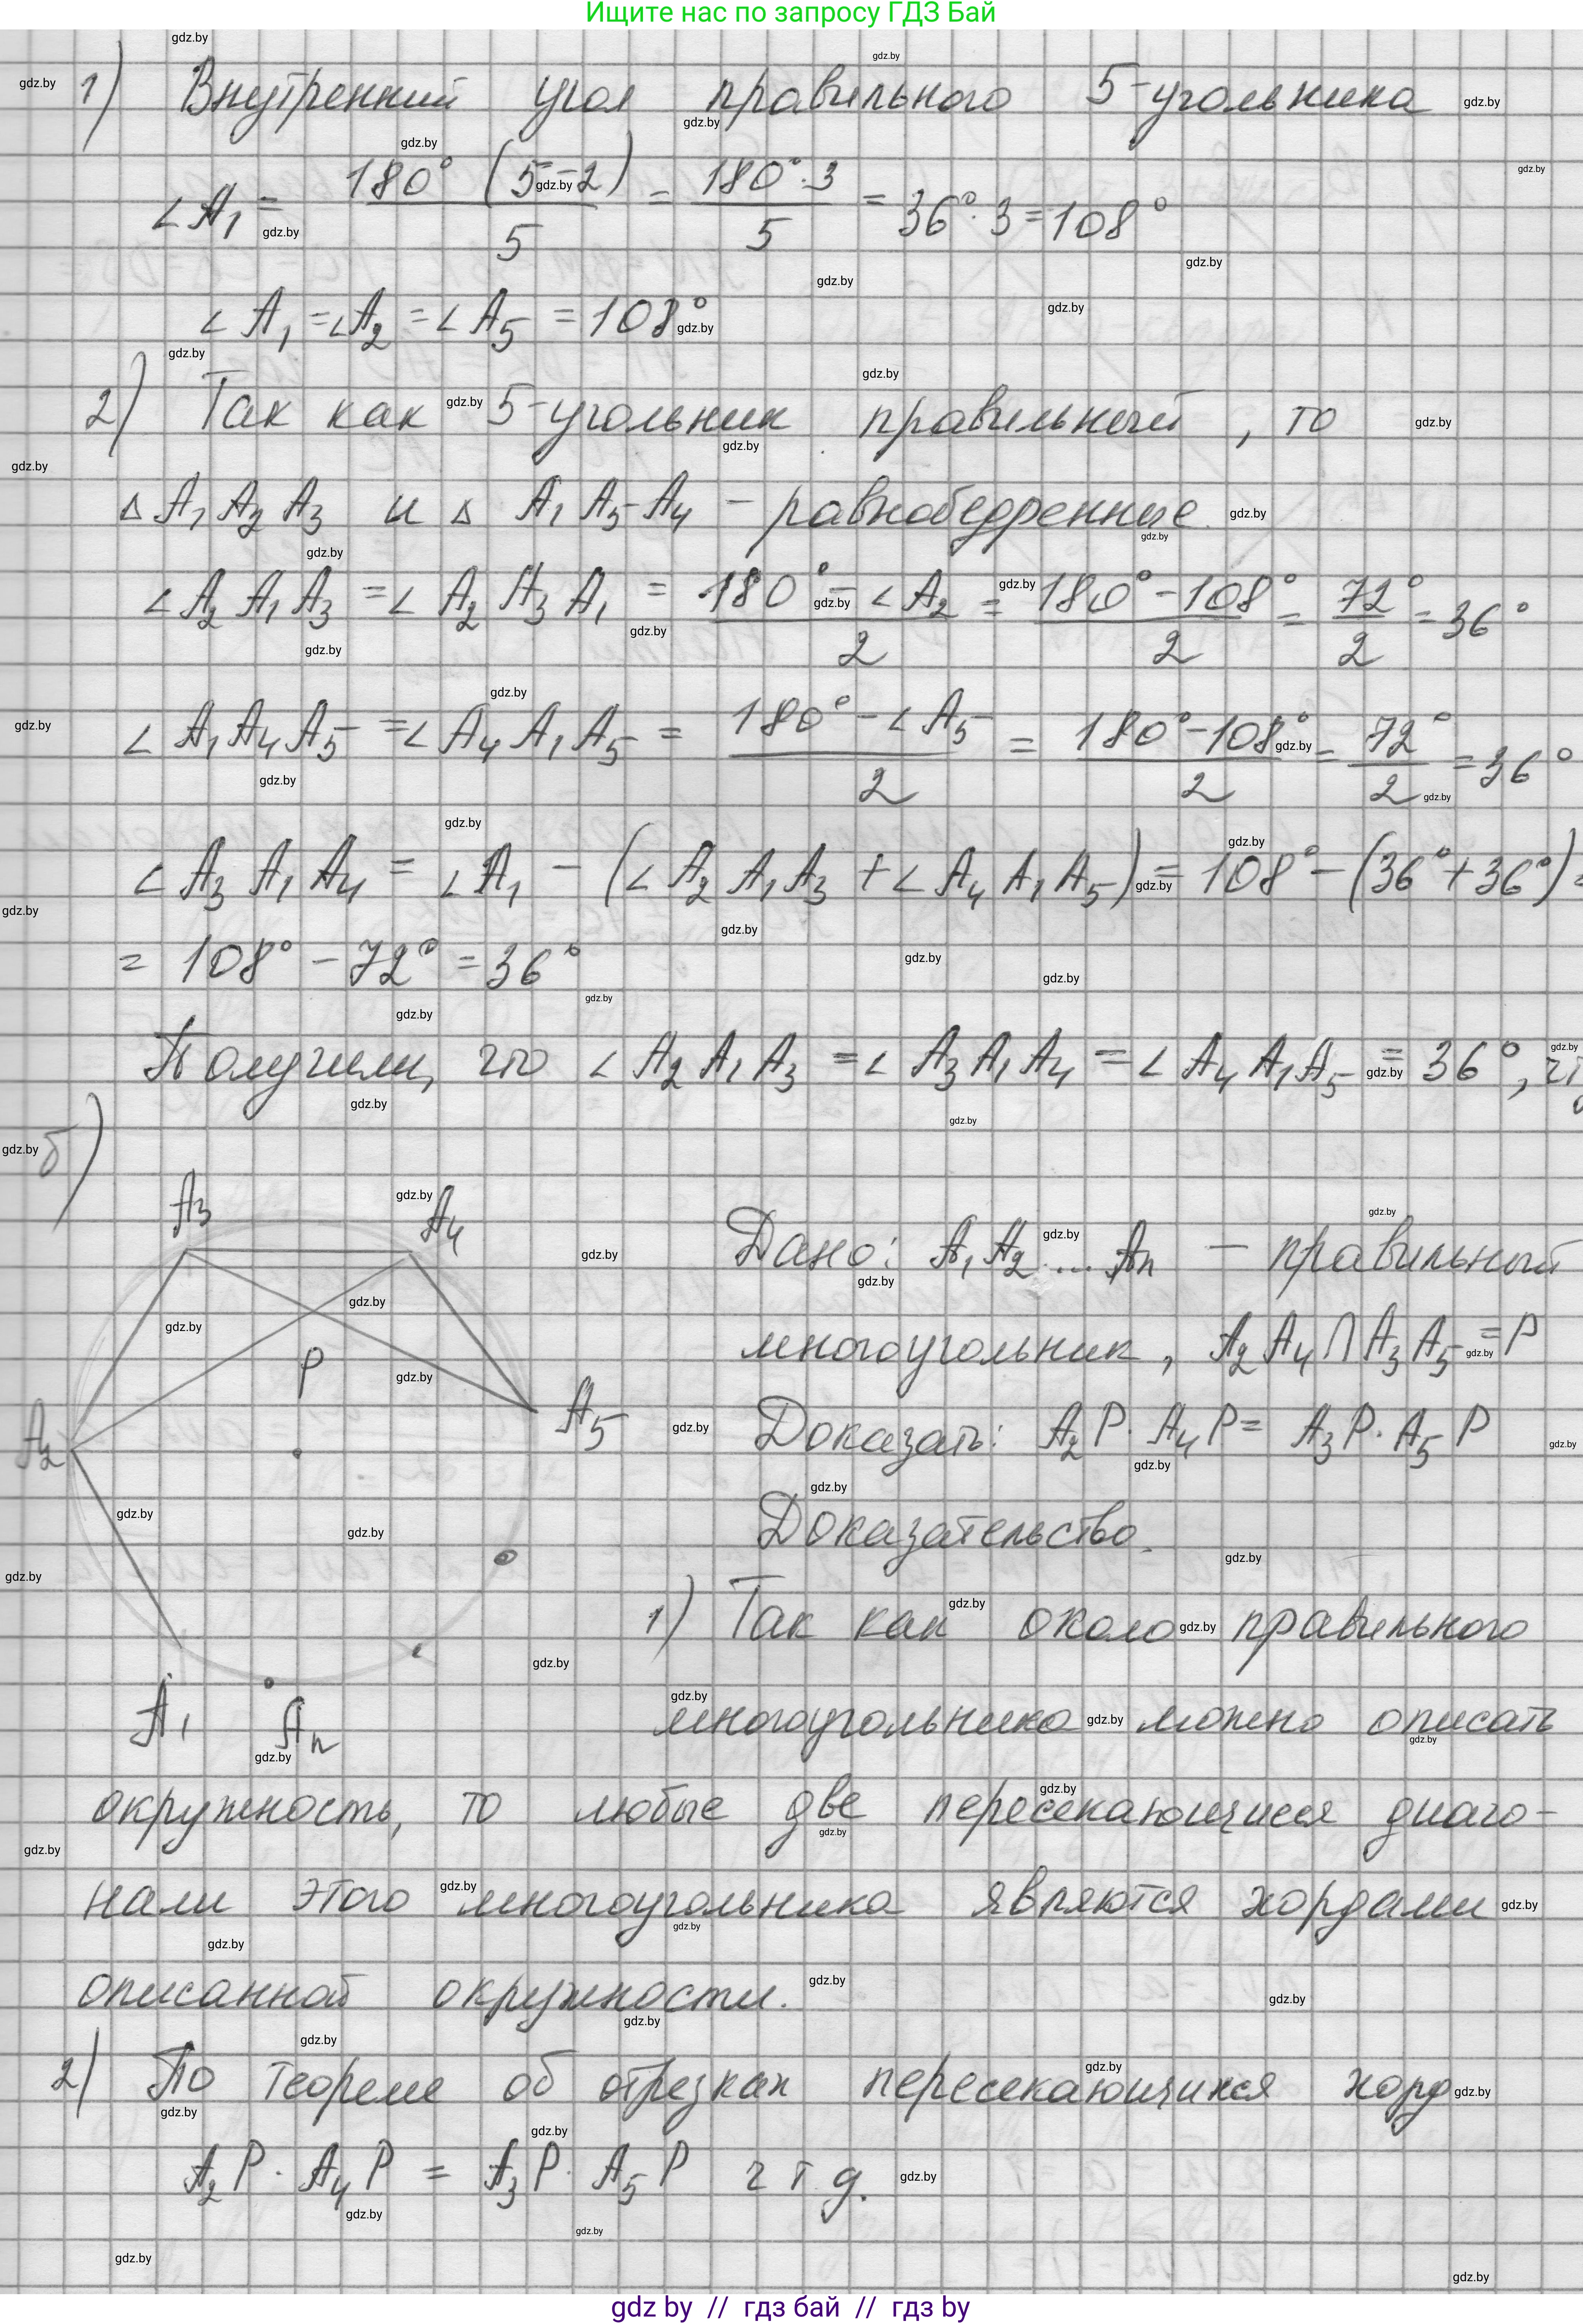 Ищите нас по запросу ГДЗ Бай
1) Внутренний угол правильного 5-угольника
∠A₁ = 180° (5-2) / 5 = 180°·3 / 5 = 36°·3 = 108°
∠A₁ = ∠A₂ = ∠A₅ = 108°
2) Так как 5-угольник правильный, то
△A₁A₂A₃ и △A₁A₅A₄ – равнобедренные.
∠A₂A₁A₃ = ∠A₂A₃A₁ = 180° - ∠A₂ / 2 = 180° - 108° / 2 = 72° / 2 = 36°
∠A₁A₄A₅ = ∠A₄A₁A₅ = 180° - ∠A₅ / 2 = 180° - 108° / 2 = 72° / 2 = 36°
∠A₃A₁A₄ = ∠A₁ - (∠A₂A₁A₃ + ∠A₄A₁A₅) = 108° - (36° + 36°) =
= 108° - 72° = 36°
Получили, что ∠A₂A₁A₃ = ∠A₃A₁A₄ = ∠A₄A₁A₅ = 36°,
б)
A₃ A₄
P
A₂ A₅
A₁ Aₙ
Дано: A₁A₂...Aₙ – правильный
многоугольник, A₂A₄ ∩ A₃A₅ = P
Доказать: A₂P · A₄P = A₃P · A₅P
Доказательство.
1) Так как около правильного
многоугольника можно описать
окружность, то любые две пересекающиеся диаго-
нали этого многоугольника являются хордами
описанной окружности.
2) По теореме об отрезках пересекающихся хорд
A₂P · A₄P = A₃P · A₅P ч т д.
gdz by // гдз бай // гдз by